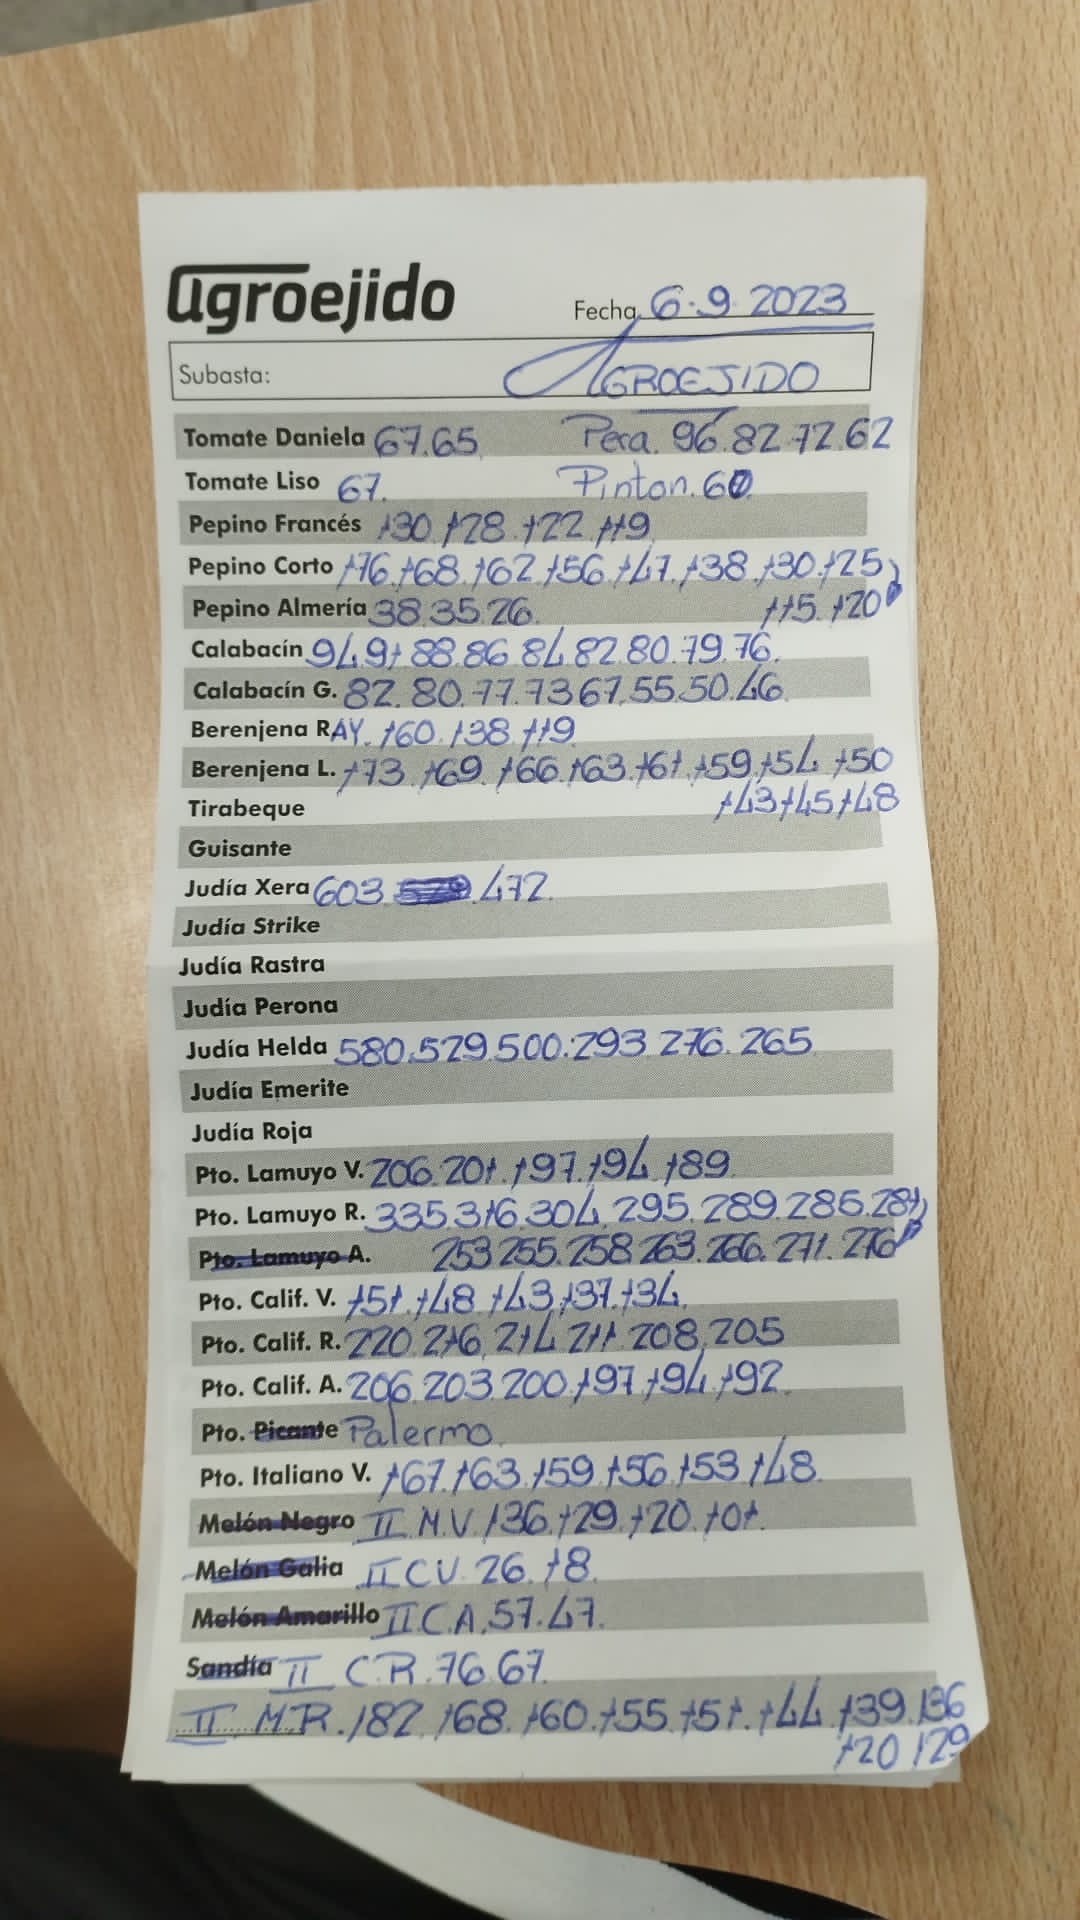 agroejido
Fecha 6.9.2023
Subasta: AGROEJIDO
Tomate Daniela 67.65 Pera. 96.82.72.62
Tomate Liso 67. Pinton. 60
Pepino Francés 130.128.122.119
Pepino Corto 176.168.162.156.147.138.130.125
Pepino Almería 38.35.26. 115.120
Calabacín 94.91.88.86.84.82.80.79.76.
Calabacín G. 82.80.77.73.67.55.50.46
Berenjena RAY. 160.138.119
Berenjena L. 173.169.166.163.161.159.154.150
Tirabeque 143.145.148
Guisante
Judía Xera 603 472.
Judía Strike
Judía Rastra
Judía Perona
Judía Helda 580.529.500.293.276.265
Judía Emerite
Judía Roja
Pto. Lamuyo V. 206.201.197.194.189
Pto. Lamuyo R. 335.316.304.295.289.285.281
Pto. Lamuyo A. 253.255.258.263.266.271.276
Pto. Calif. V. 151.148.143.137.134.
Pto. Calif. R. 220.216.214.211.208.205
Pto. Calif. A. 206.203.200.197.194.192.
Pto. Picante Palermo.
Pto. Italiano V. 167.163.159.156.153.148.
Melón Negro II M.V. 136.129.120.101.
Melón Galia II C.V. 26.18.
Melón Amarillo II C.A. 57.47.
Sandía II C.R. 76.67.
II M.R. 182.168.160.155.151.144.139.136
120 129